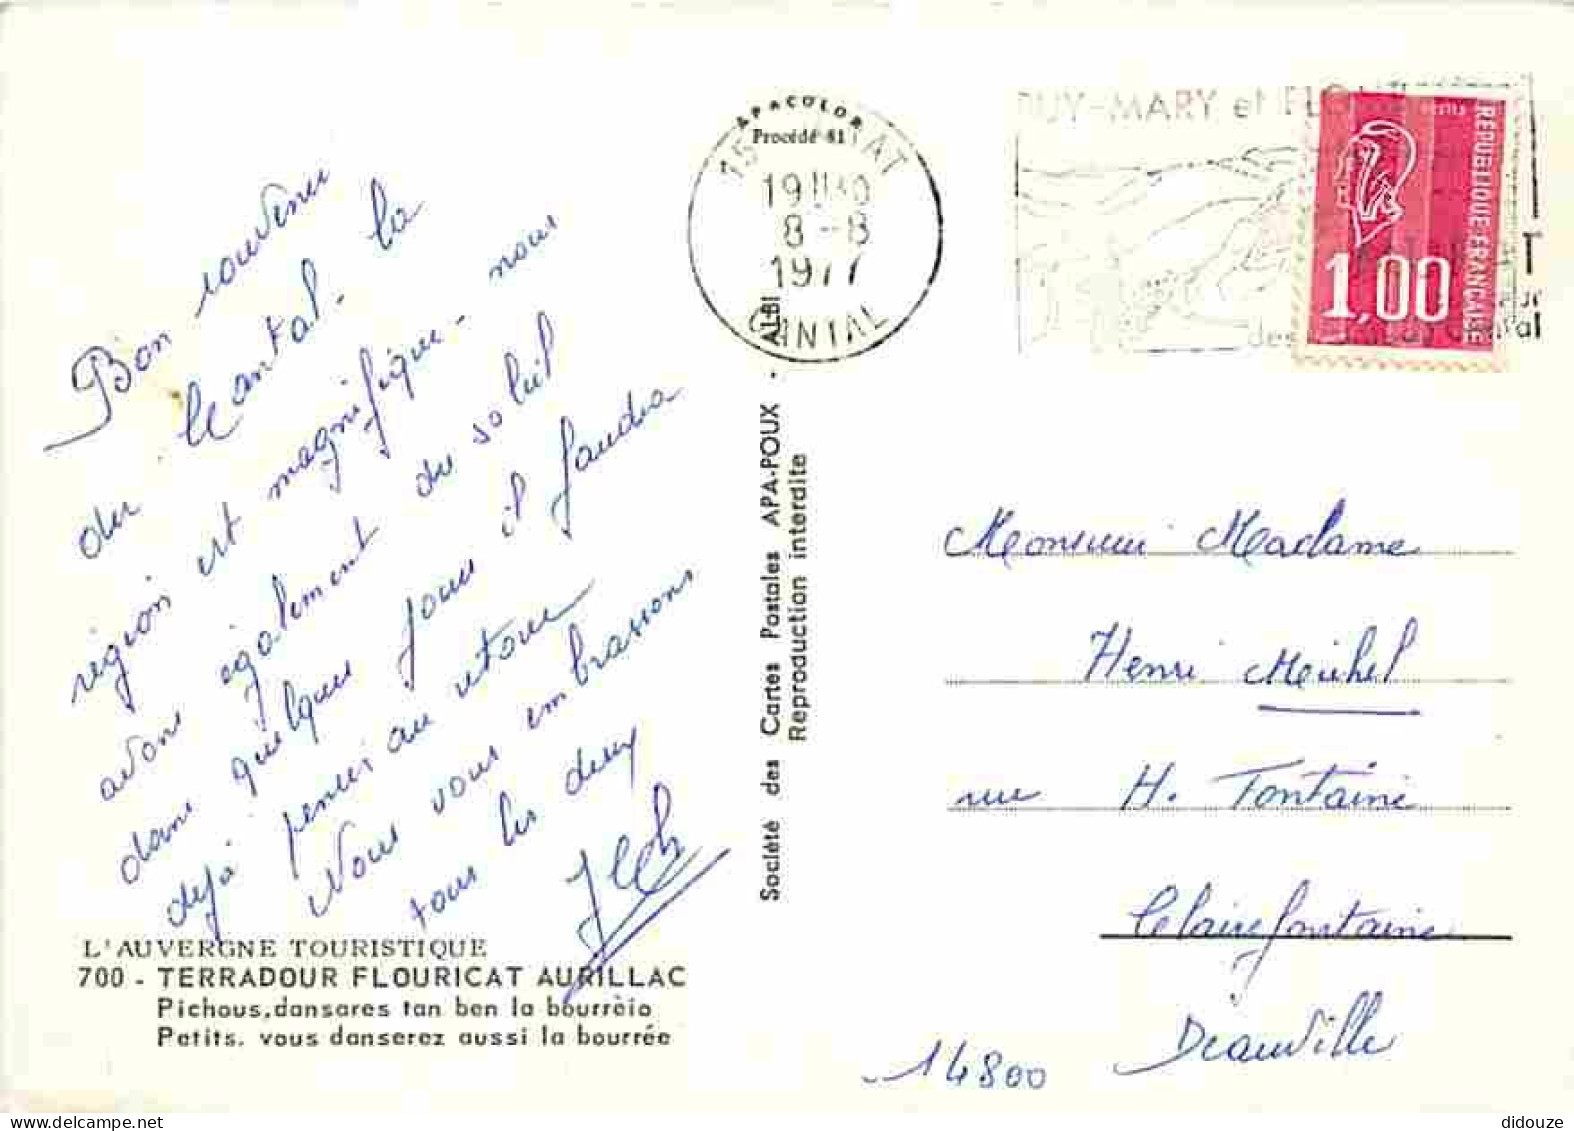 Bon souvenir
du Cantal. la
région est magnifique. nous
avons également du soleil
dans quelques jours il faudra
déjà penser au retour
Nous vous embrassons
tous les deux
L'AUVERGNE TOURISTIQUE
700 - TERRADOUR FLOURICAT AURILLAC
Pichous, dansares tan ben la bourrèio
Petits, vous danserez aussi la bourrée
Société des Cartes Postales APA-POUX - ALBI
Reproduction interdite
APACOLOR
Procédé 61
15
AT
19H30
8-8
1977
CANTAL
PUY-MARY et
des
REPUBLIQUE FRANCAISE
POSTES
1,00
Monsieur Madame
Henri Michel
rue H. Fontaine
Clairefontaine
Deauville
14800
didouze